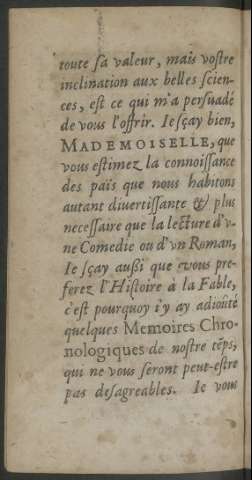 toute sa valeur, mais vostre
inclination aux belles scien-
ces, est ce qui m'a persuadé
de vous l'offrir. Ie sçay bien,
MADEMOISELLE, que
vous estimez la connoissance
des païs que nous habitons
autant divertissante & plus
necessaire que la lecture d'v-
ne Comedie ou d'vn Roman,
Ie sçay aussi que vous pre-
ferez l'Histoire à la Fable,
c'est pourquoy i'y ay adioûté
quelques Memoires Chro-
nologiques de nostre tẽps,
qui ne vous seront peut-estre
pas desagreables. Ie vous